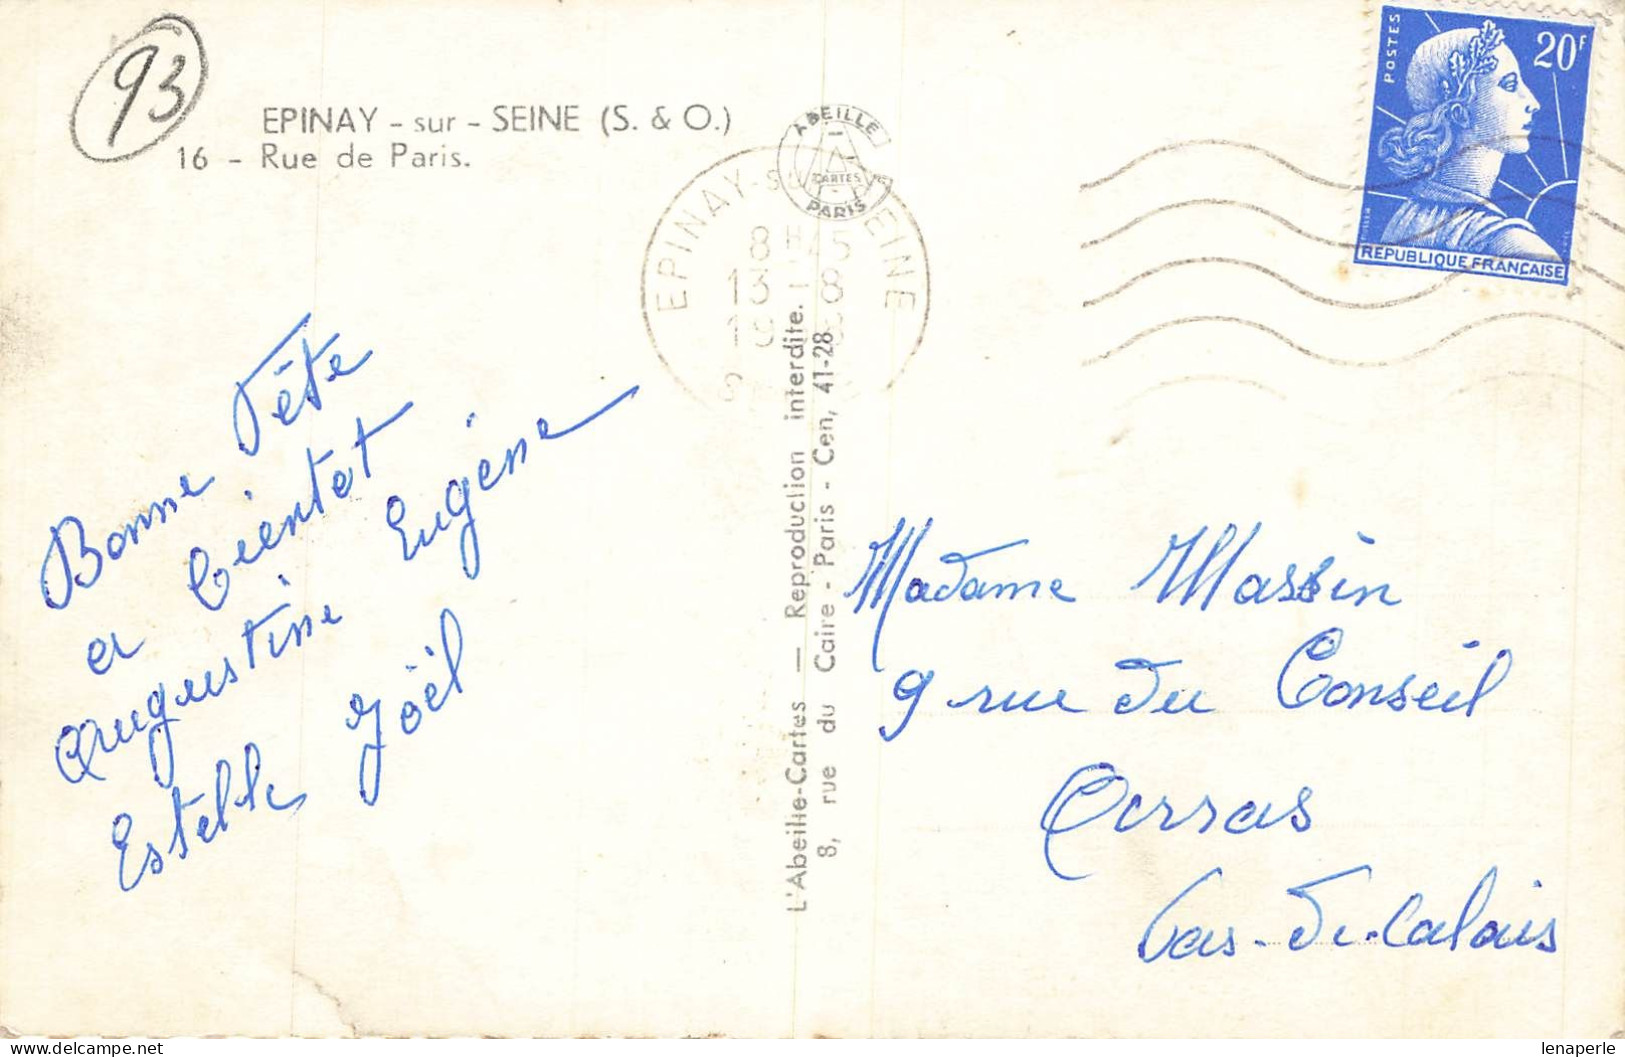 93
EPINAY - sur - SEINE (S. & O.)
16 - Rue de Paris.
ABEILLE
CARTES
PARIS
EPINAY-SUR-SEINE
8H45
13
8
19
POSTES
20F
REPUBLIQUE FRANCAISE
Bonne Fête
et bientot
Augustine Eugène
Estelle Joël
L'Abeille-Cartes — Reproduction interdite.
8, rue du Caire - Paris - Cen, 41-28
Madame Massin
9 rue du Conseil
Arras
Pas-de-Calais
lenaperle